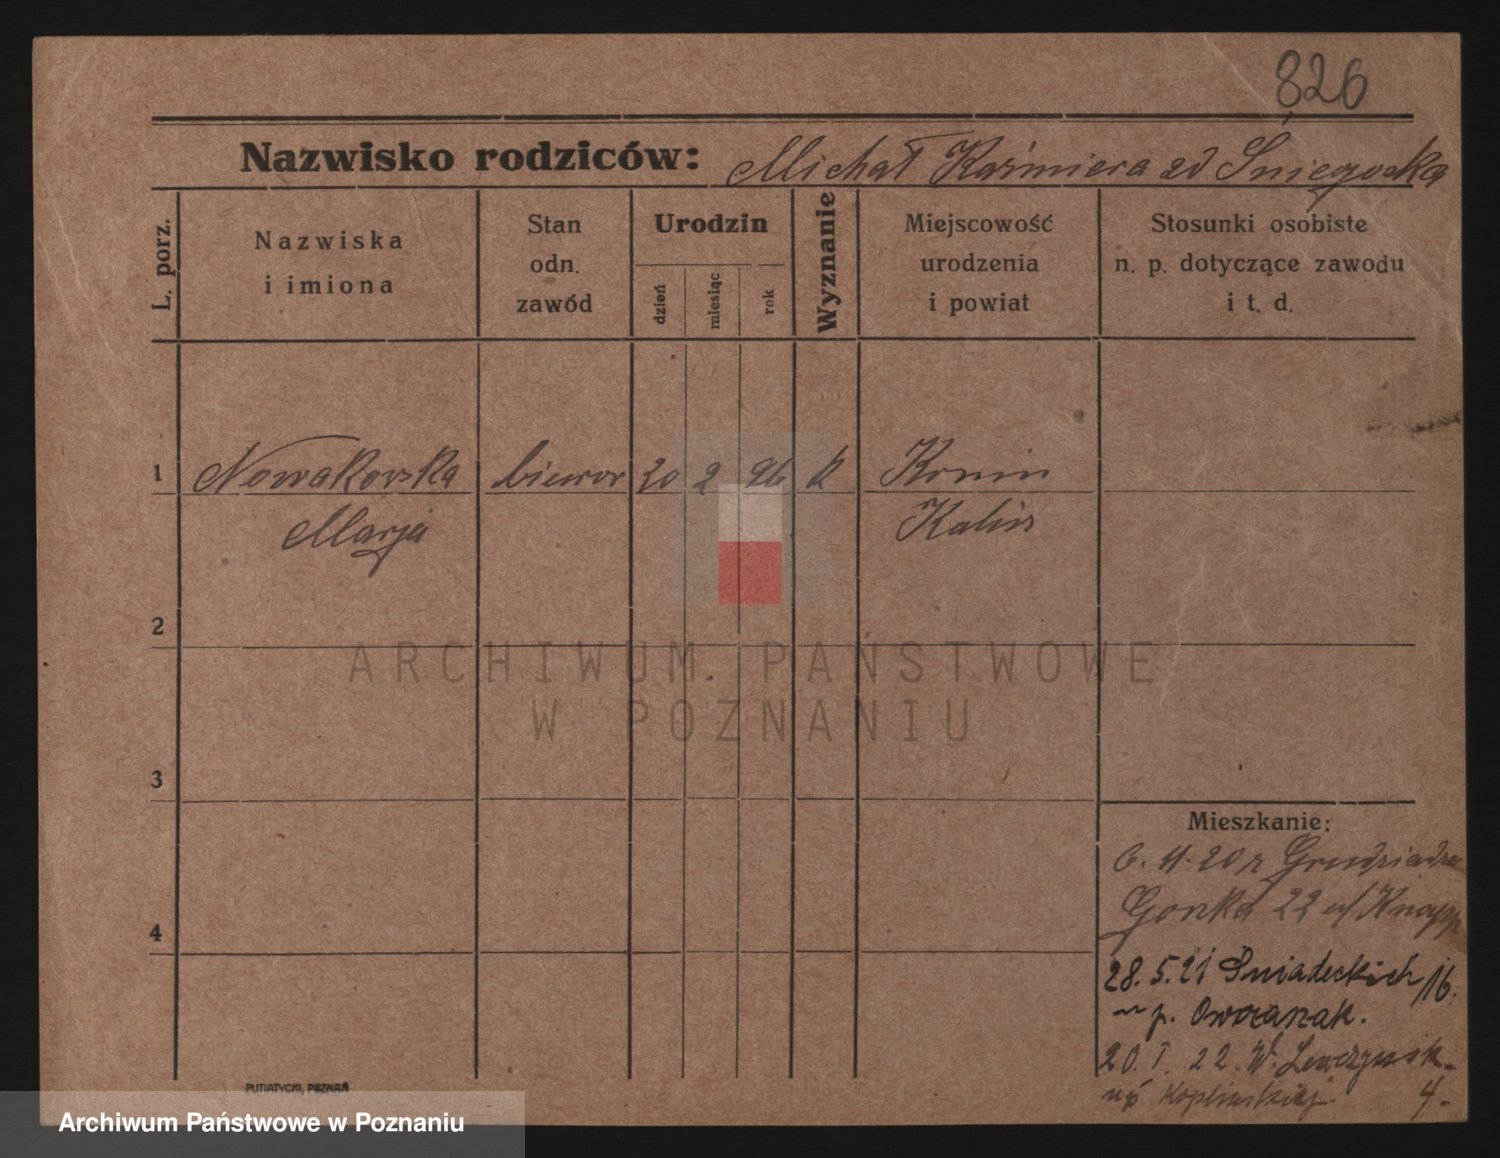 826
Nazwisko rodziców: Michał Kaźmiera zd Śniegocka
L. porz.
Nazwiska
i imiona
Stan
odn.
zawód
Urodzin
dzień
miesiąc
rok
Wyznanie
Miejscowość
urodzenia
i powiat
Stosunki osobiste
n. p. dotyczące zawodu
i t. d.
1 Nowakowska 20 2 96 k Konin
Marja Kalisz
2
ARCHIWUM PAŃSTWOWE
W POZNANIU
3
Mieszkanie:
6. 11. 20 z Grudziądza
4
22 Knapp
28. 5. 21 Śniadeckich 16.
p. Owczarzak.
20. I. 22. W.
4.
PUTIATYCKI, POZNAŃ
Archiwum Państwowe w Poznaniu